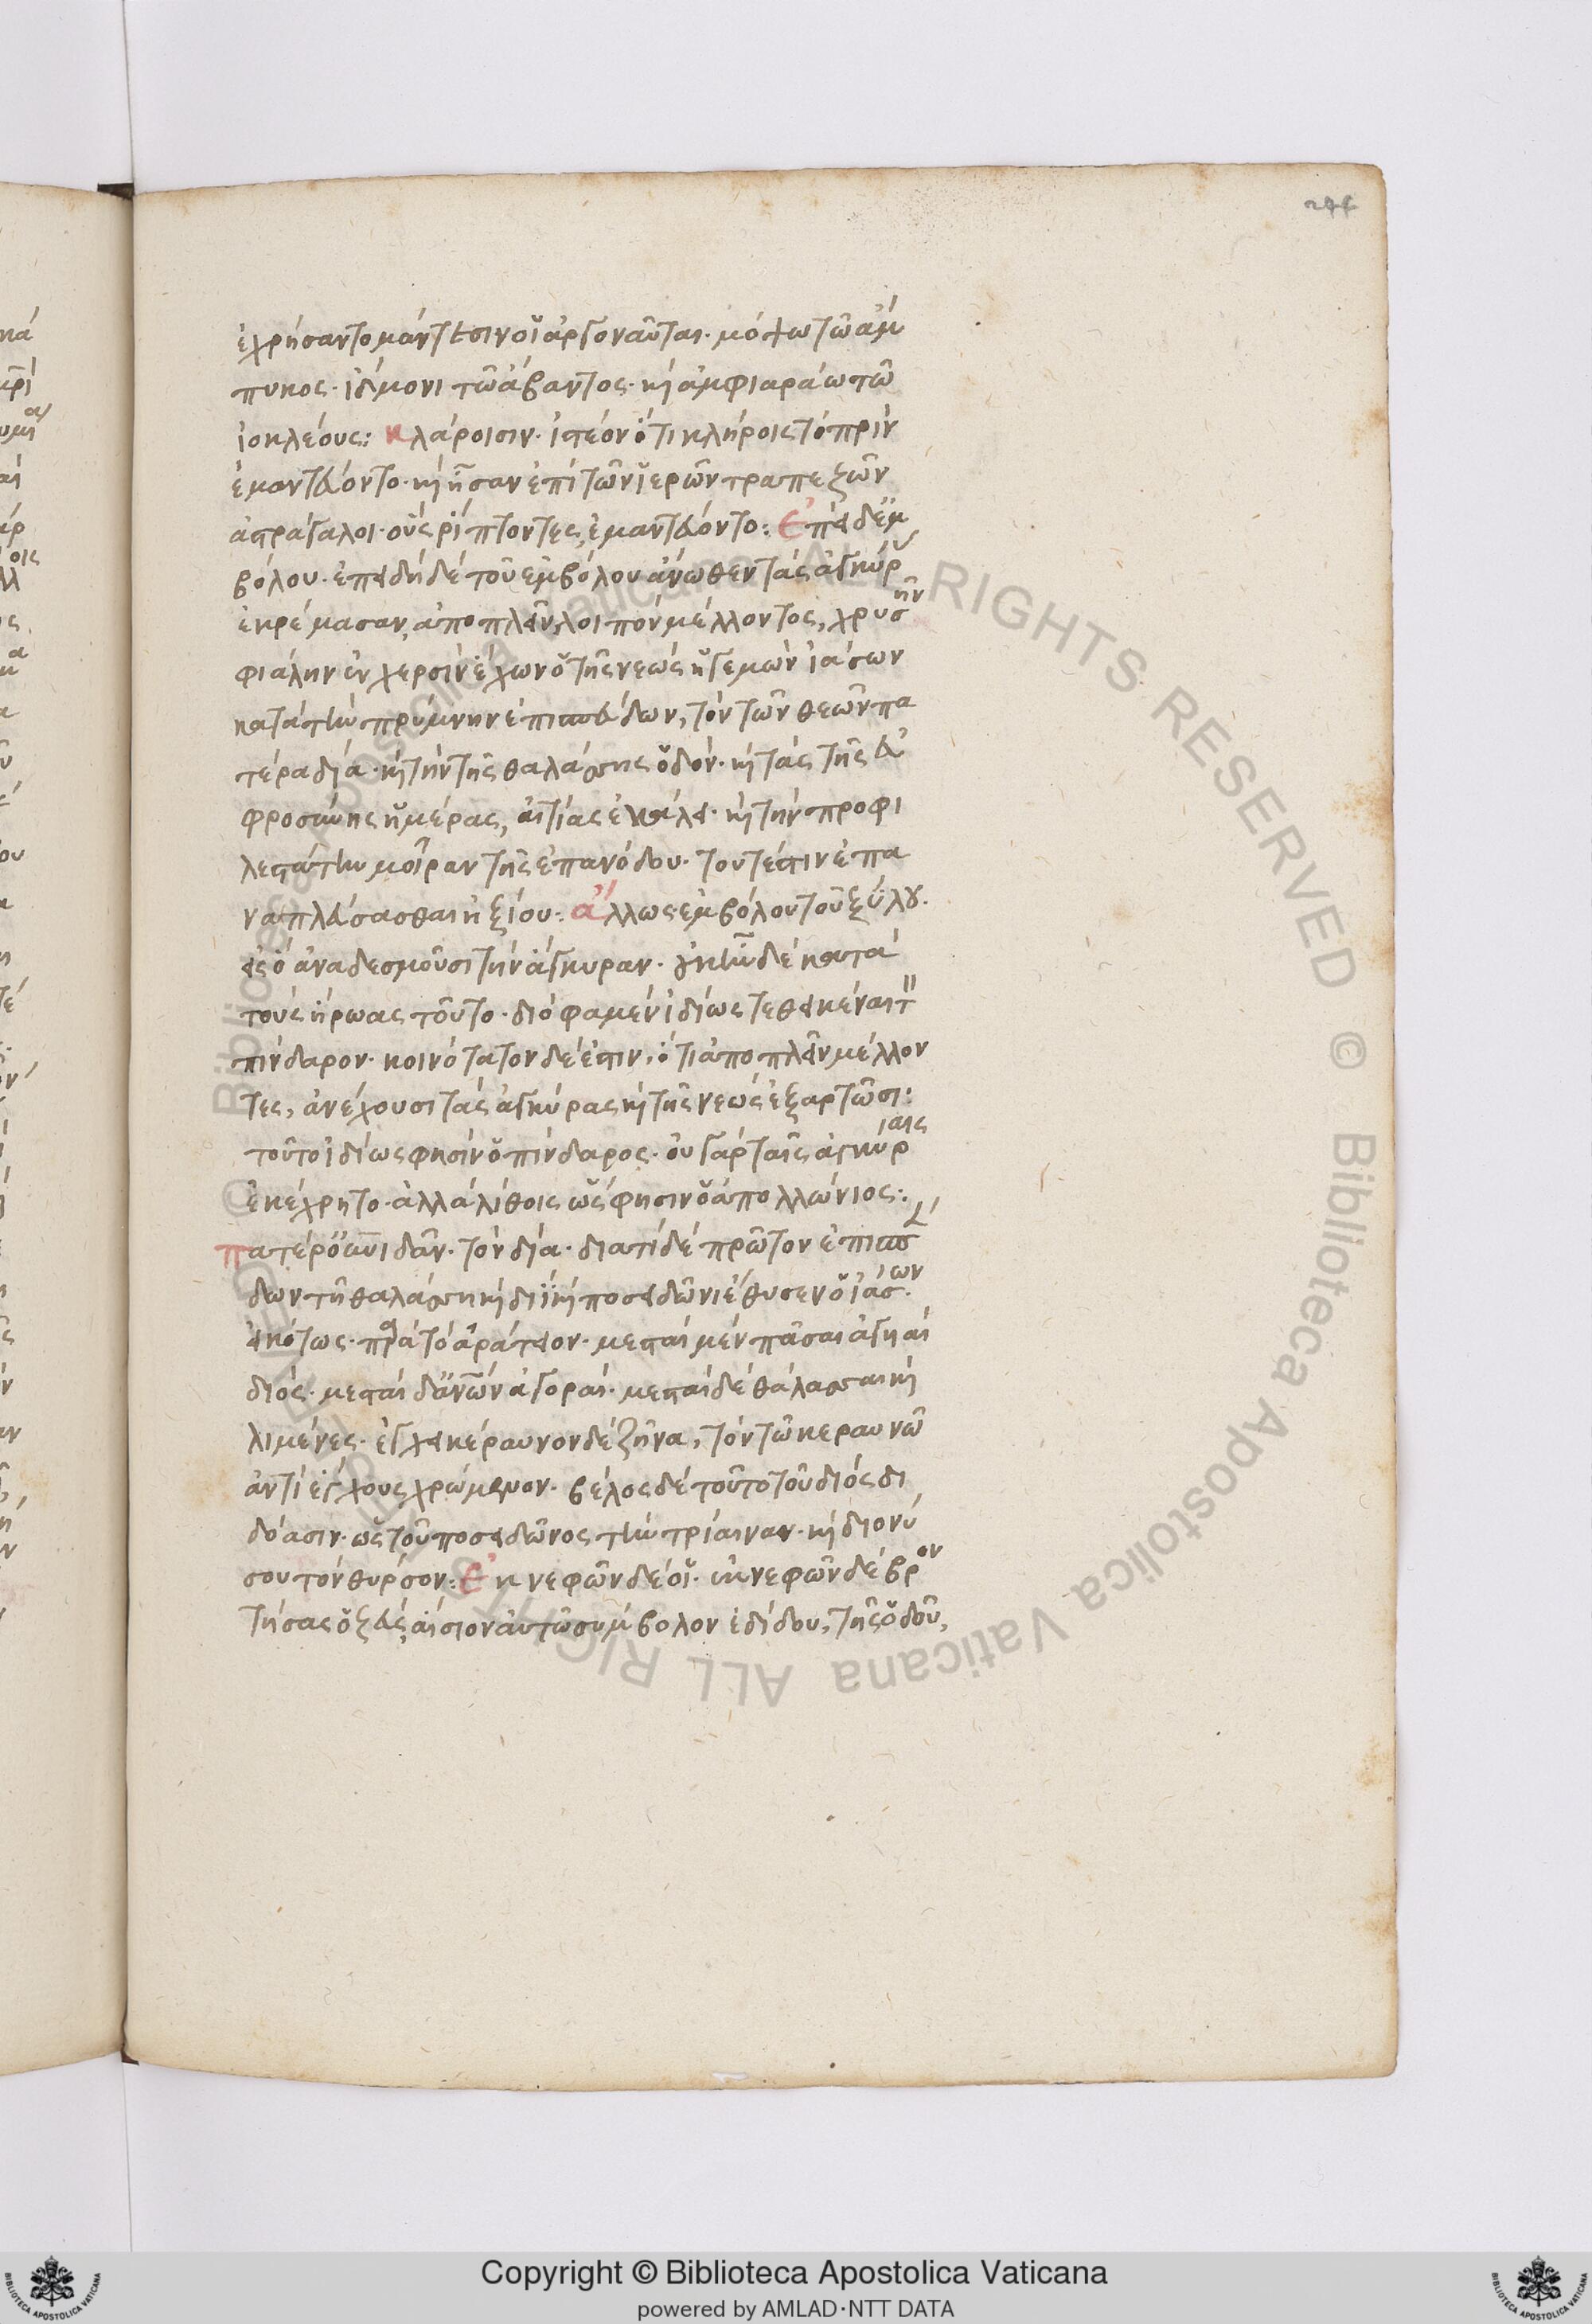 244
ἐχρήσαντο μάντεσιν οἱ ἀργοναῦται· μόψω τῶ ἄμ
πυκος· ἴδμονι τῶ ἄβαντος· καὶ ἀμφιαράω τῶ
ἰοκλέους: κλάροισιν· ἰστέον ὅτι κλήροις τὸ πρὶν
ἐμαντεύοντο· καὶ ἦσαν ἐπὶ τῶν ἱερῶν τραπεζῶν
ἀστράγαλοι· οὓς ῥίπτοντες, ἐμαντεύοντο: Ἐπεὶ δ' ἐμ
βόλου· ἐπειδὴ δὲ τοῦ ἐμβόλου ἄνωθεν τὰς ἀγκύρ
ἐκρέμασαν, ἀποπλεῖν λοιπὸν μέλλοντος, χρυσῆν
φιάλην ἐν χερσὶν ἔχων ὁ τῆς νεὼς ἡγεμὼν ἰάσων
κατὰ τὴν πρύμνην ἐπισπεύδων, τὸν τῶν θεῶν πα
τέρα δία· καὶ τὴν τῆς θαλάσσης ὁδόν· καὶ τὰς τῆς εὐ
φροσύνης ἡμέρας, αἰτίας ἐκάλει· καὶ τὴν προσφι
λεστάτην μοῖραν τῆς ἐπανόδου· τουτέστιν ἐπα
ναπλεύσασθαι ἠξίου: ἄλλως ἐμβόλου τοῦ ξύλου·
εἰς ὃ ἀναδεσμοῦσι τὴν ἄγκυραν· οὐκ ἦν δὲ κατὰ
τοὺς ἥρωας τοῦτο· διὸ φαμὲν ἰδίως τεθεικέναι τ
πίνδαρον· κοινότατον δέ ἐστιν, ὅτι ἀποπλεῖν μέλλον
τες, ἀνέχουσι τὰς ἀγκύρας καὶ τῆς νεὼς ἐξαρτῶσι:
τοῦτο ἰδίως φησὶν ὁ πίνδαρος· οὐ γὰρ ταῖς ἀγκύραις
ἐκέχρητο· ἀλλὰ λίθοις ὥς φησιν ὁ ἀπολλώνιος:
πατέρ' οὐρανιδᾶν· τὸν δία· διατί δὲ πρῶτον ἐπισπεύ
δων τῆ θαλάσση καὶ διῒ καὶ ποσειδῶνι ἔθυσεν ὁ ἰάσων·
εἰκότως· παρὰ τὸ ἀράτειον· μεσταὶ μὲν πᾶσαι ἀγυιαὶ
διός· μεσταὶ δ' ἀνων ἀγοραί· μεσταὶ δὲ θάλασσαι καὶ
λιμένες· ἐγχεικέραυνον δὲ ζῆνα, τὸν τῶ κεραυνῶ
ἀντὶ ἔγχους χρώμενον· βέλος δὲ τοῦτο τοῦ διὸς δι
δόασιν· ὡς τοῦ ποσειδῶνος τὴν τρίαιναν· καὶ διονύ
σου τὸν θύρσον: Ἐκ νεφῶν δέ οἱ· ἐκ νεφῶν δὲ βρον
τήσας ὁ ζεύς, αἴσιον αὐτῶ σύμβολον ἐδίδου, τῆς ὁδοῦ,
Copyright © Biblioteca Apostolica Vaticana
powered by AMLAD·NTT DATA